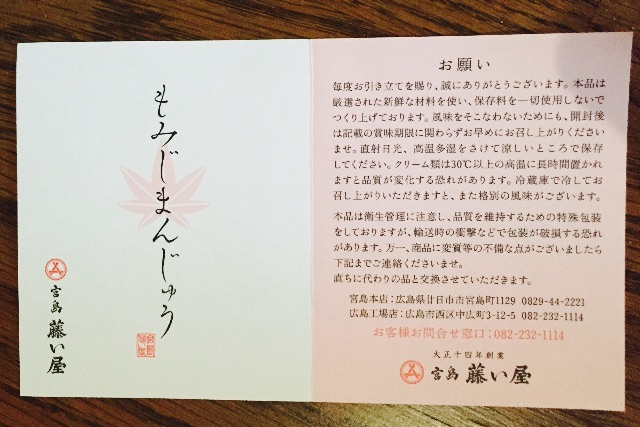 もみじまんじゅう
宮島 藤い屋
お願い
毎度お引き立てを賜り、誠にありがとうございます。本品は
厳選された新鮮な材料を使い、保存料を一切使用しないで
つくり上げております。風味をそこなわないためにも、開封後
は記載の賞味期限に関わらずお早めにお召し上がりくださ
いませ。直射日光、高温多湿をさけて涼しいところで保存
してください。クリーム類は30℃以上の高温に長時間置かれ
ますと品質が変化する恐れがあります。冷蔵庫で冷してお召
し上がりいただきますと、また格別の風味がございます。
本品は衛生管理に注意し、品質を維持するための特殊包装
をしておりますが、輸送時の衝撃などで包装が破損する恐れ
があります。万一、商品に変質等の不備な点がございましたら
下記までご連絡くださいませ。
直ちに代わりの品と交換させていただきます。
宮島本店：広島県廿日市市宮島町1129 0829-44-2221
広島工場店：広島市西区中広町3-12-5 082-232-1114
お客様お問合せ窓口：082-232-1114
大正十四年創業
宮島 藤い屋